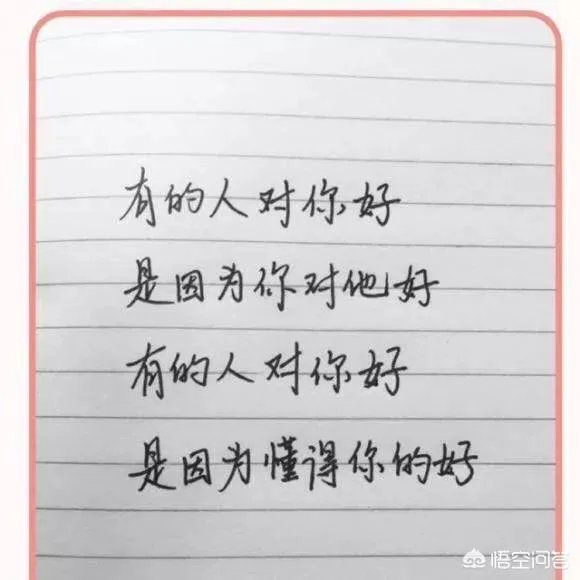 有的人对你好
是因为你对他好
有的人对你好
是因为懂得你的好
悟空问答